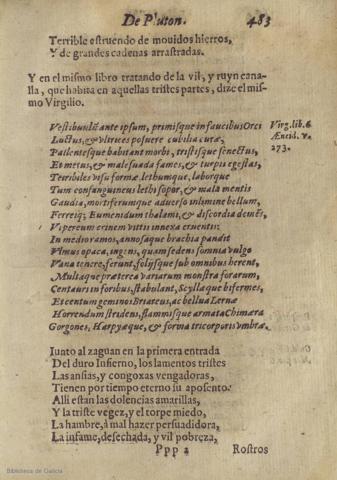 De Pluton. 483
Terrible estruendo de mouidos hierros,
Y de grandes cadenas arrastradas.
Y en el mismo libro tratando de la vil, y ruyn cana-
lla, que habita en aquellas tristes partes, dize el mis-
mo Virgilio.
Vestibulũ ante ipsum, primisque in faucibus Orci
Virg. lib. 6.
Luctus, & vltrices posuere cubilia curæ,
Æneid. v.
Pallentesque habitant morbi, tristisque senectus,
273.
Et metus, & malesuada fames, & turpis egestas,
Terribiles visu formæ lethumque, laborque
Tum consanguineus lethi sopor, & mala mentis
Gaudia, mortiferumque aduerso in limine bellum,
Ferreiq; Eumenidum thalami, & discordia demẽs,
Vipereum crinem vittis innexa cruentis:
In medio ramos, annosaque brachia pandit
Vlmus opaca, ingens, quam sedem somnia vulgo
Vana tenere, ferunt, folijsque sub omnibus hærent,
Multaque præterea variarum monstra ferarum,
Centauri in foribus, stabulant, Scyllaque biformes,
Et centum geminus Briareus, ac bellua Lernæ
Horrendum stridens, flammisque armata Chimæra
Gorgones, Harpyæque, & forma tricorporis vmbræ.
Iunto al zaguan en la primera entrada
Del duro Infierno, los lamentos tristes
Las ansias, y congoxas vengadoras,
Tienen por tiempo eterno su aposento.
Alli estan las dolencias amarillas,
Y la triste vegez, y el torpe miedo,
La hambre, à mal hazer persuadidora,
La infame, desechada, y vil pobreza,
Ppp 2 Rostros
Biblioteca de Galicia